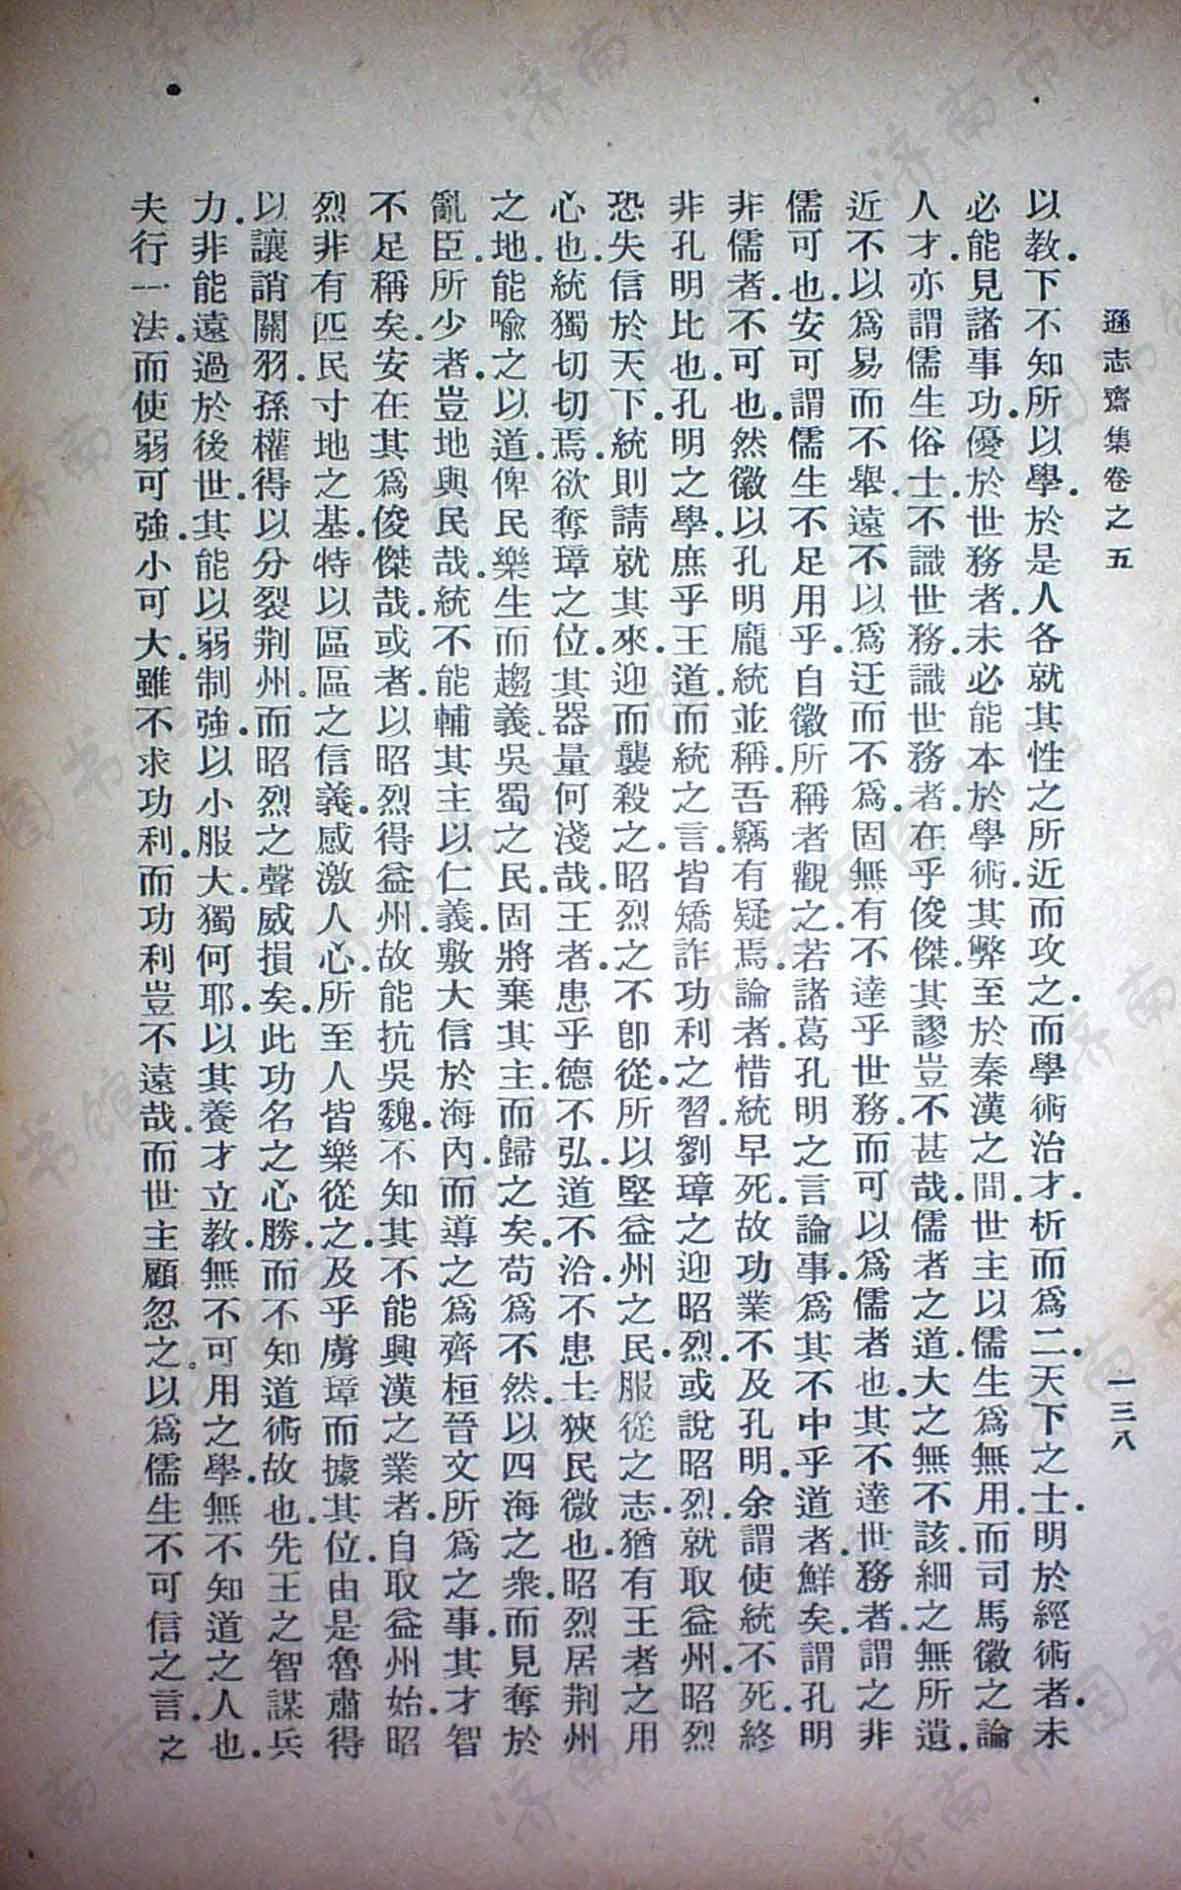 遜志齋集卷之五
一三八
以教.下不知所以學.於是人各就其性之所近而攻之.而學術治才.析而爲二.天下之士.明於經術者.未
必能見諸事功.優於世務者.未必能本於學術.其弊至於秦漢之間.世主以儒生爲無用.而司馬徽之論
人才.亦謂儒生俗士.不識世務.識世務者.在乎俊傑.其謬豈不甚哉.儒者之道.大之無不該.細之無所遺.
近不以爲易而不舉.遠不以爲迂而不爲.固無有不達乎世務.而可以爲儒者也.其不達世務者.謂之非
儒可也.安可謂儒生不足用乎.自徽所稱者觀之.若諸葛孔明之言論事.爲其不中乎道者.鮮矣.謂孔明
非儒者.不可也.然徽以孔明龐統並稱.吾竊有疑焉.論者惜統早死.故功業不及孔明.余謂使統不死.終
非孔明比也.孔明之學.庶乎王道.而統之言.皆矯詐功利之習.劉璋之迎昭烈.或說昭烈.就取益州.昭烈
恐失信於天下.統則請就其來.迎而襲殺之.昭烈之不卽從.所以堅益州之民.服從之志.猶有王者之用
心也.統獨切切焉.欲奪璋之位.其器量何淺哉.王者.患乎德不弘.道不洽.不患士狹民微也.昭烈居荆州
之地.能喻之以道.俾民樂生而趨義.吳蜀之民.固將棄其主.而歸之矣.苟爲不然.以四海之衆.而見奪於
亂臣.所少者.豈地與民哉.統不能輔其主以仁義.敷大信於海內.而導之爲齊桓晉文所爲之事.其才智
不足稱矣.安在其爲俊傑哉.或者.以昭烈得益州.故能抗吳魏.不知其不能興漢之業者.自取益州始.昭
烈非有匹民寸地之基.特以區區之信義.感激人心.所至人皆樂從之.及乎虜璋而據其位.由是魯肅得
以讓誚關羽.孫權得以分裂荆州.而昭烈之聲威損矣.此功名之心勝.而不知道術故也.先王之智謀兵
力.非能遠過於後世.其能以弱制強.以小服大.獨何耶.以其養才立教.無不可用之學.無不知道之人也.
夫行一法.而使弱可強.小可大.雖不求功利.而功利豈不遠哉.而世主顧忽之.以爲儒生不可信之言.之